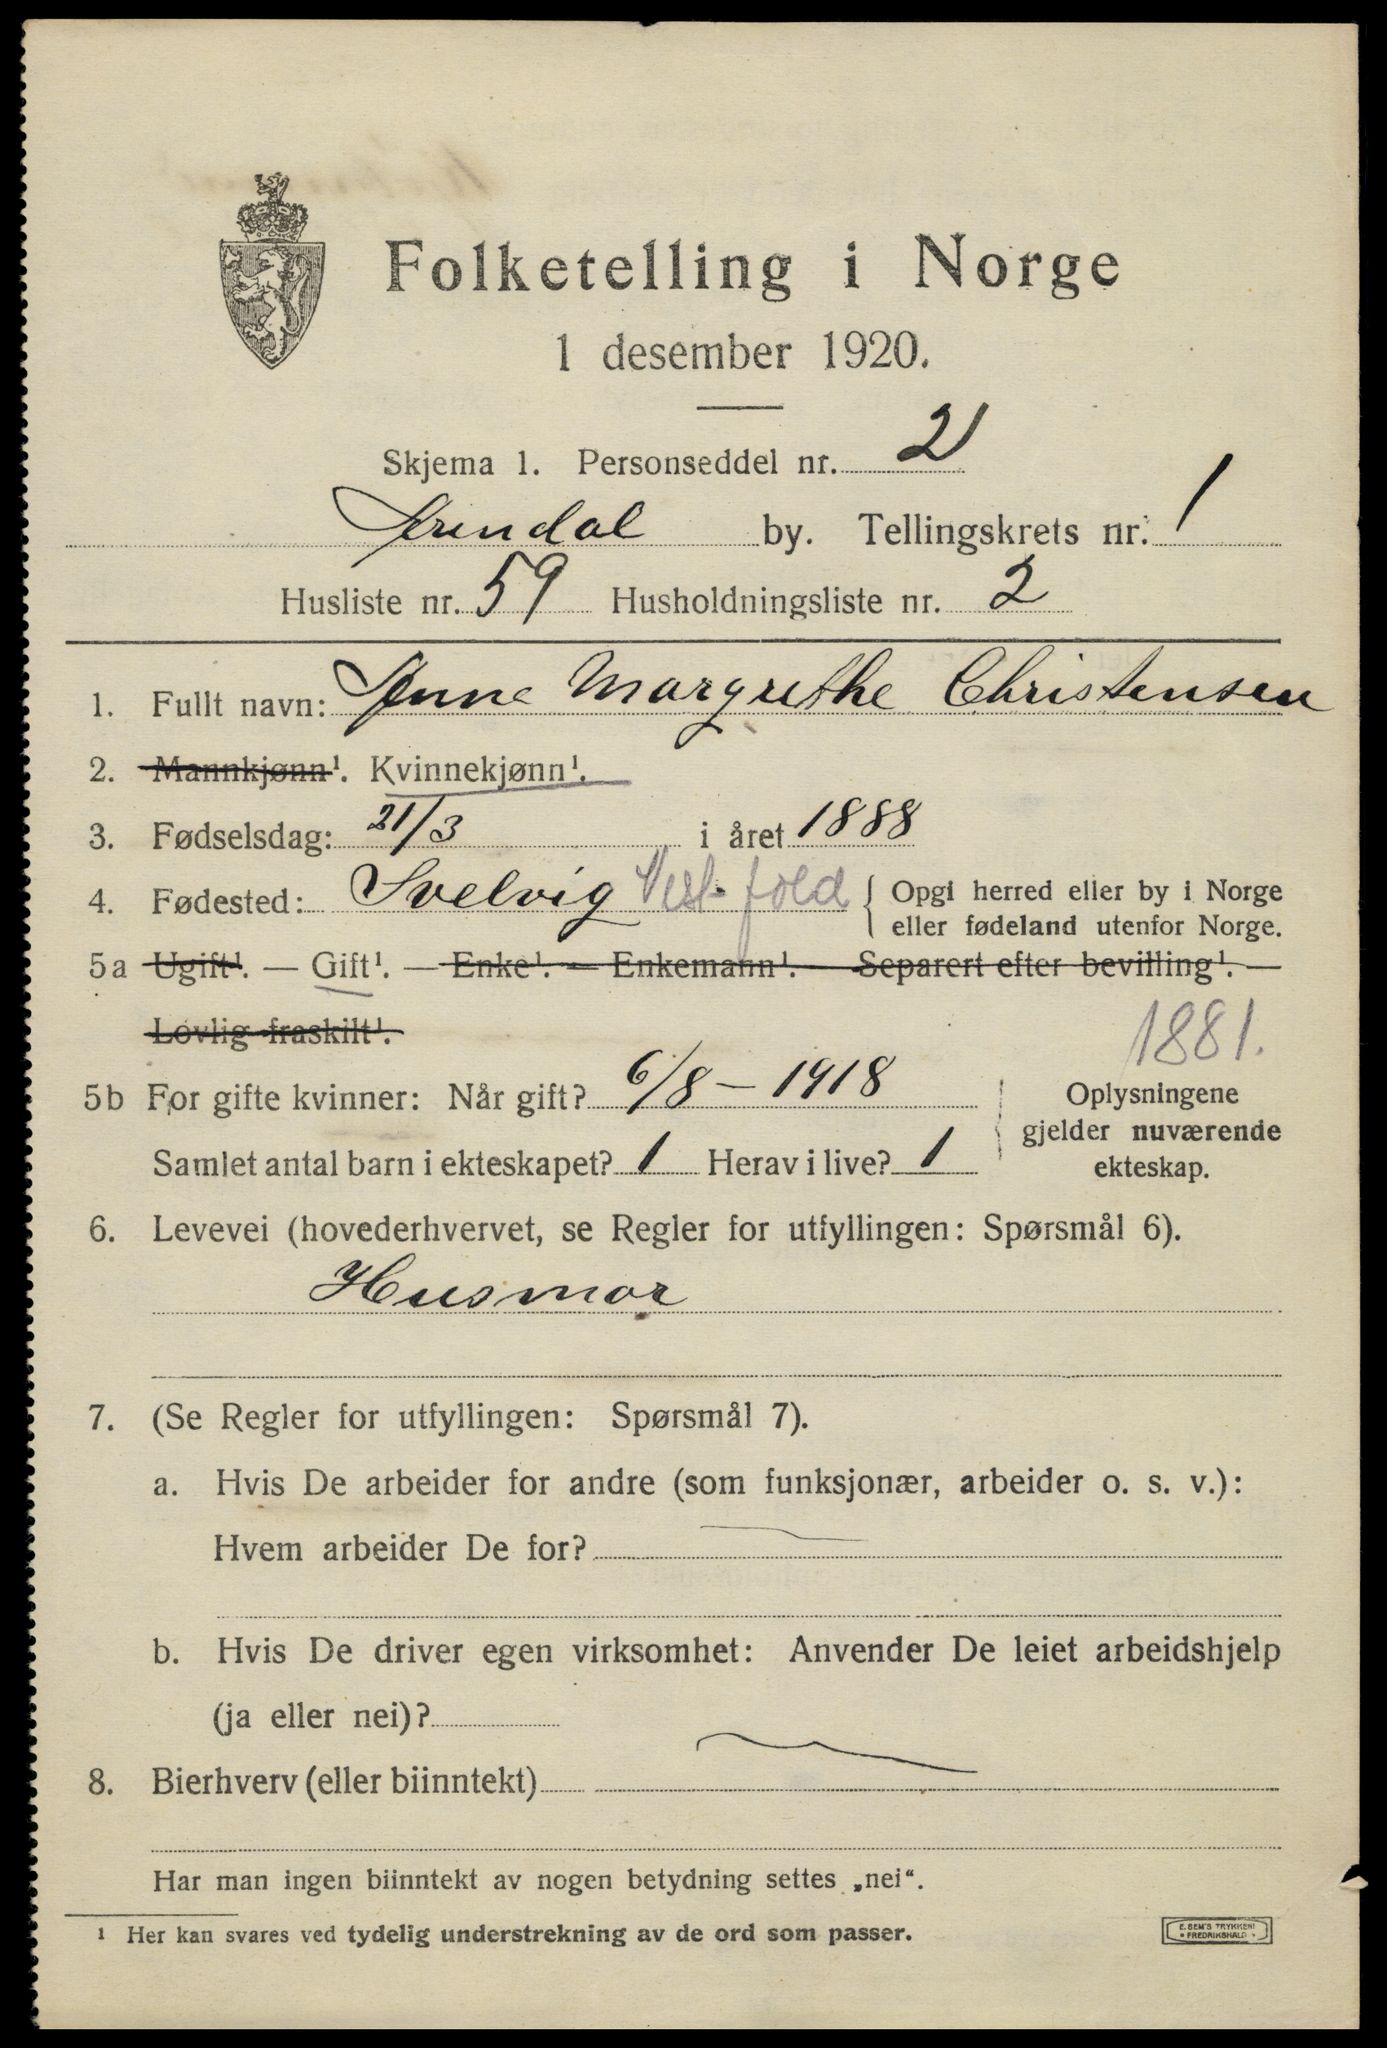 Folketelling i Norge
1 desember 1920.
Skjema 1. Personseddel nr. 2
Arendal by. Tellingskrets nr. 1
Husliste nr. 59 Husholdningsliste nr. 2
1. Fullt navn: Anne Margrethe Christensen
2. Mannkjønn¹. Kvinnekjønn¹.
3. Fødselsdag: 21/3 i året 1888
4. Fødested: Svelvig Vestfold { Opgi herred eller by i Norge
eller fødeland utenfor Norge.
5a Ugift¹. — Gift¹. — Enke¹. — Enkemann¹. — Separert efter bevilling¹. —
Lovlig fraskilt¹.
1881.
5b For gifte kvinner: Når gift? 6/8 – 1918
Oplysningene
gjelder nuværende
ekteskap.
Samlet antal barn i ekteskapet? 1 Herav i live? 1
6. Levevei (hovederhvervet, se Regler for utfyllingen: Spørsmål 6).
Husmor
7. (Se Regler for utfyllingen: Spørsmål 7).
a. Hvis De arbeider for andre (som funksjonær, arbeider o. s. v.):
Hvem arbeider De for?
b. Hvis De driver egen virksomhet: Anvender De leiet arbeidshjelp
(ja eller nei)?
8. Bierhverv (eller biinntekt)
Har man ingen biinntekt av nogen betydning settes „nei“.
¹ Her kan svares ved tydelig understrekning av de ord som passer.
E. SEM'S TRYKKERI
• FREDRIKSHALD •